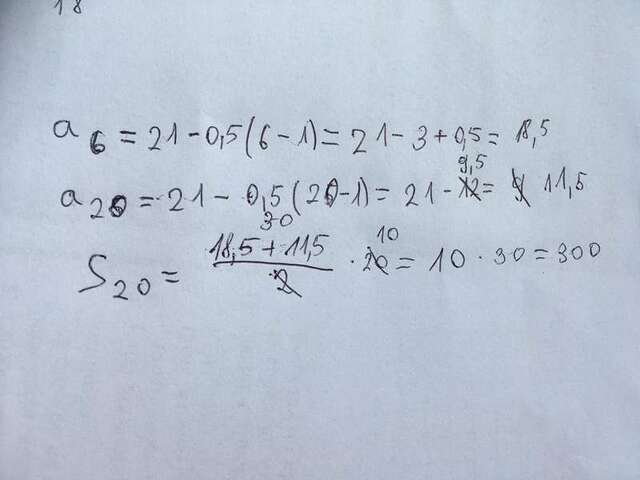 18
a₆ = 21 - 0,5(6 - 1) = 21 - 3 + 0,5 = 18,5
9,5
a₂₀ = 21 - 0,5(20 - 1) = 21 - 12 = 9 11,5
30 10
S₂₀ = (18,5 + 11,5)/2 · 20 = 10 · 30 = 300